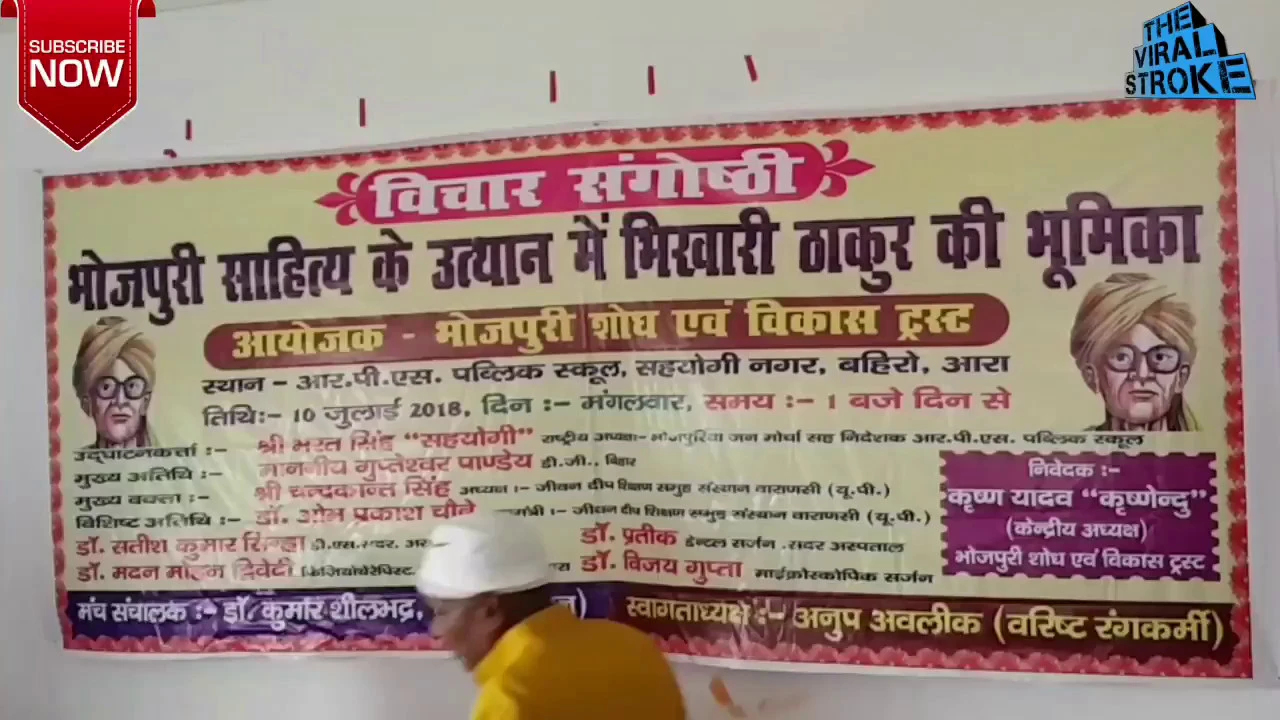 SUBSCRIBE
NOW
THE
VIRAL
STROKE
विचार संगोष्ठी
भोजपुरी साहित्य के उत्थान में भिखारी ठाकुर की भूमिका
आयोजक - भोजपुरी शोध एवं विकास ट्रस्ट
स्थान - आर.पी.एस. पब्लिक स्कूल, सहयोगी नगर, बहिरो, आरा
तिथि:- 10 जुलाई 2018, दिन :- मंगलवार, समय :- 1 बजे दिन से
उद्घाटनकर्त्ता :- श्री भरत सिंह “सहयोगी” राष्ट्रीय अध्यक्ष- भोजपुरिया जन मोर्चा सह निदेशक आर.पी.एस. पब्लिक स्कूल
मुख्य अतिथि :- माननीय गुप्तेश्वर पाण्डेय डी.जी., बिहार
मुख्य वक्ता :- श्री चन्द्रकान्त सिंह अध्यक्ष :- जीवन दीप शिक्षण समुह संस्थान वाराणसी (यू.पी.)
विशिष्ट अतिथि :- डॉ. ओम प्रकाश चौबे :- जीवन दीप शिक्षण समुह संस्थान वाराणसी (यू.पी.)
डॉ. सतीश कुमार सिन्हा डी.एस. सदर,
डॉ. प्रतीक डेन्टल सर्जन, सदर अस्पताल
डॉ. मदन मोहन द्विवेदी फिजियोथेरेपिस्ट,
डॉ. विजय गुप्ता माईक्रोस्कोपिक सर्जन
निवेदक :-
कृष्ण यादव “कृष्णेन्दु”
(केन्द्रीय अध्यक्ष)
भोजपुरी शोध एवं विकास ट्रस्ट
मंच संचालक :- डॉ. कुमार शीलभद्र,
स्वागताध्यक्ष :- अनुप अवलीक (वरिष्ट रंगकर्मी)